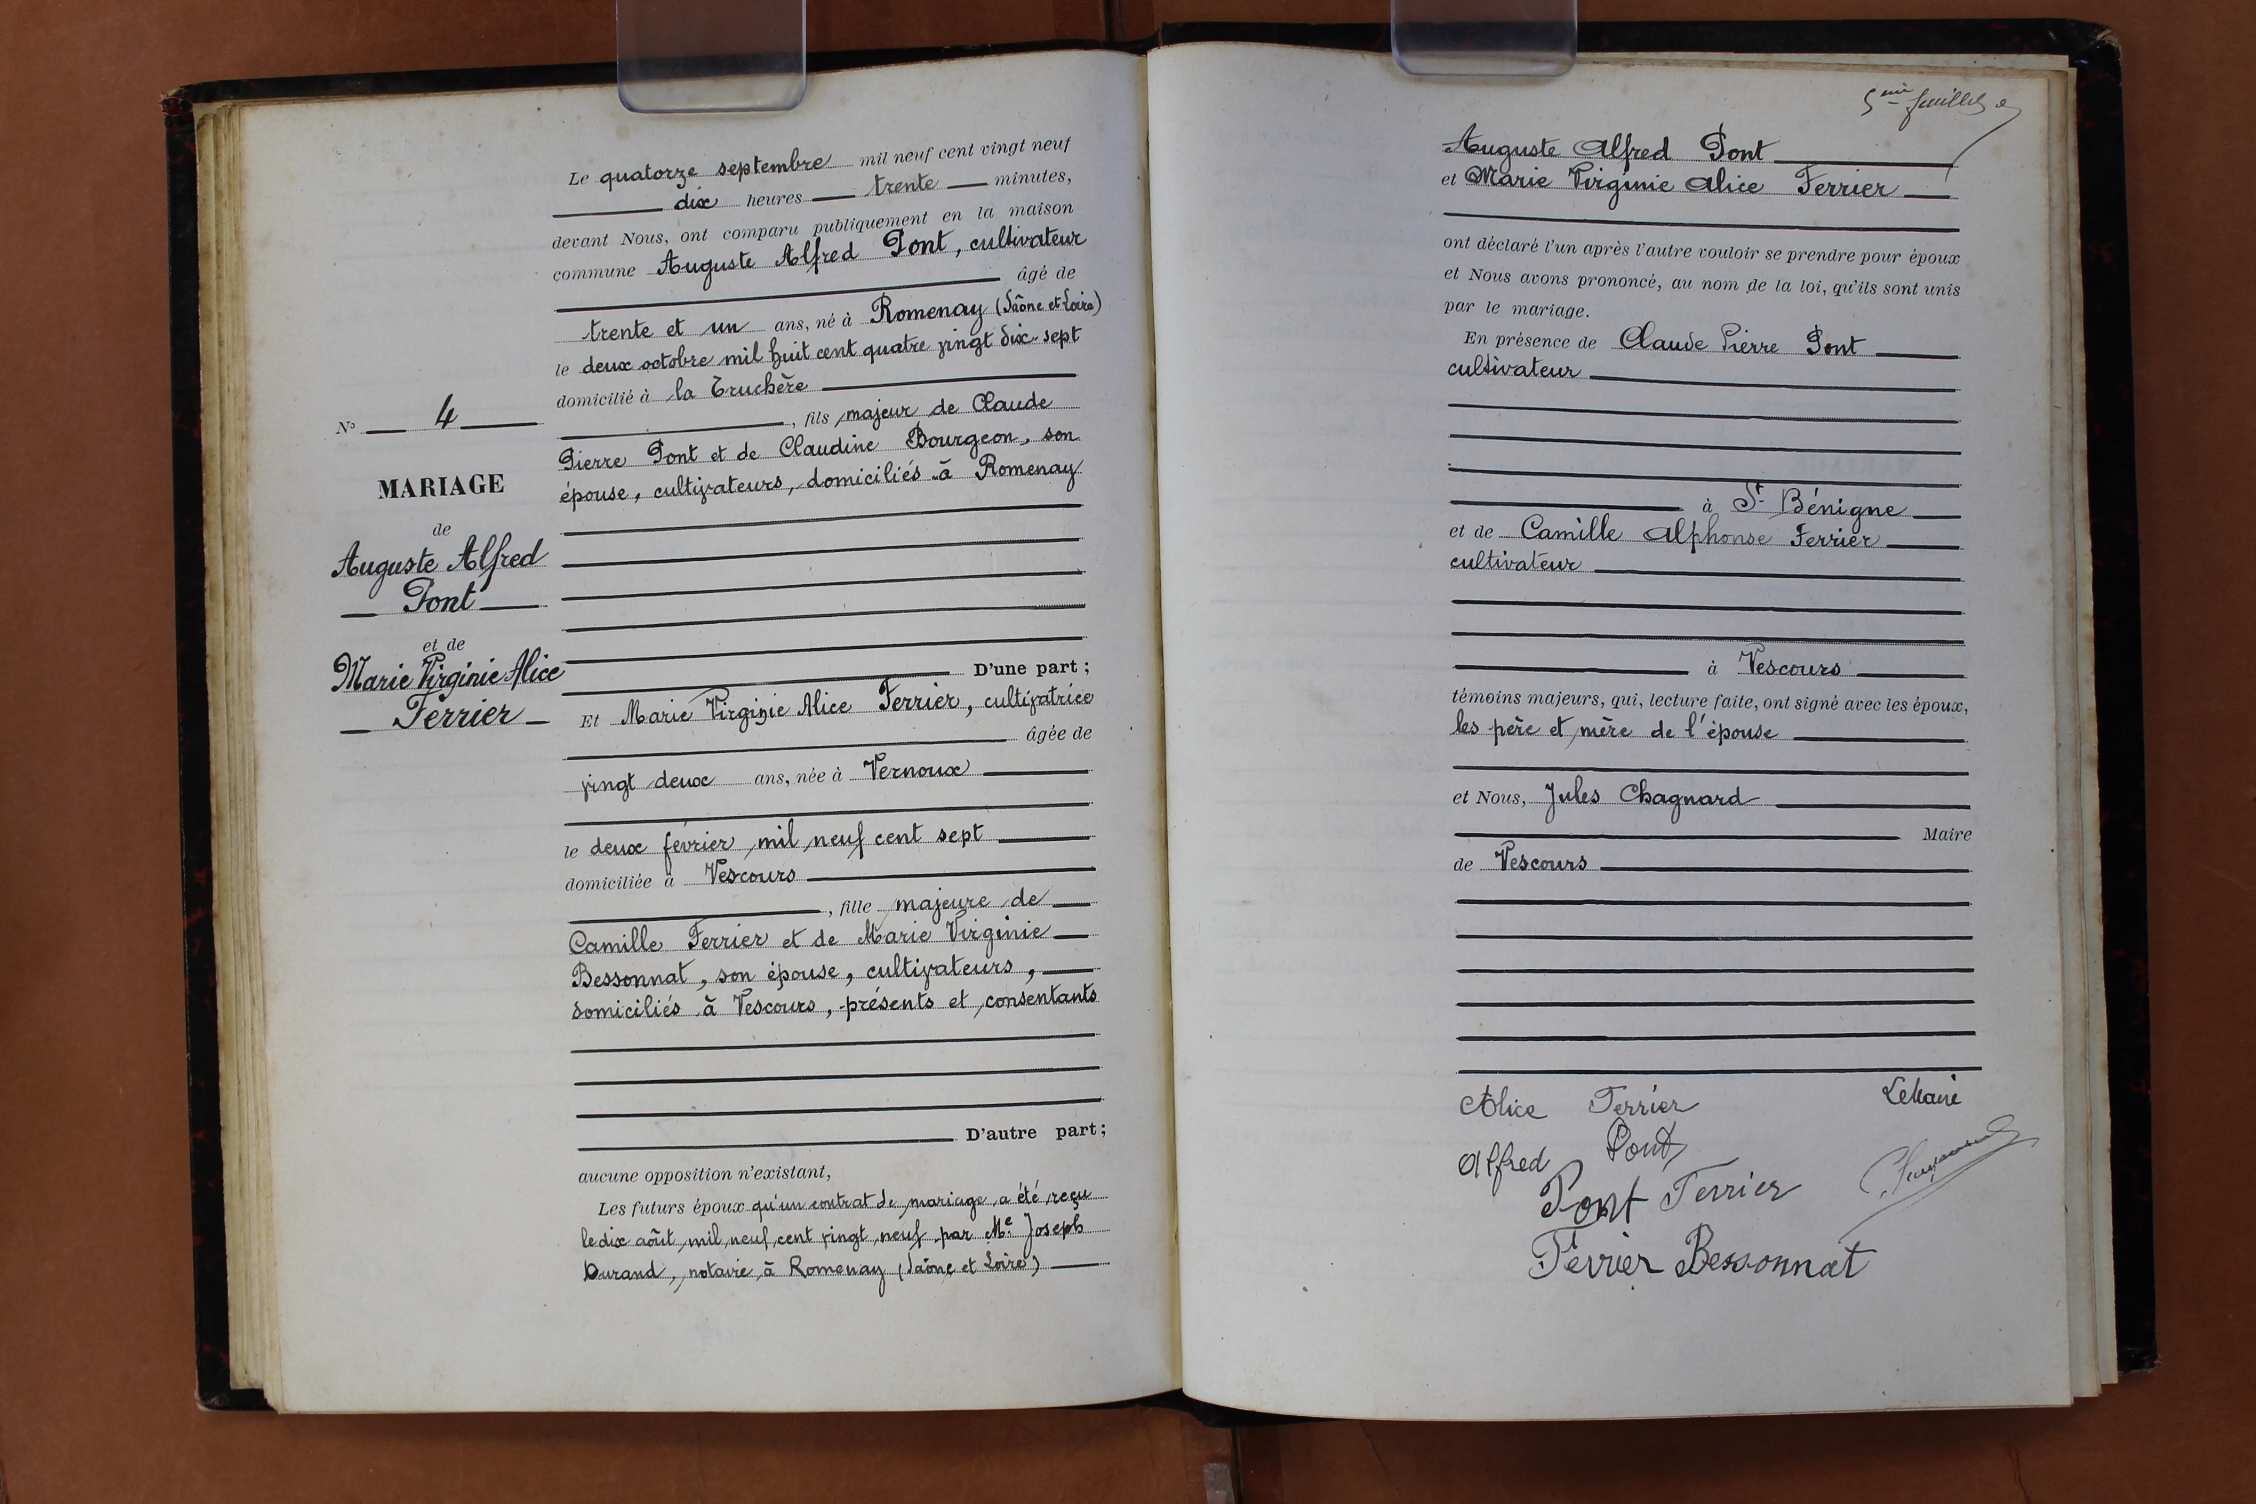 N° 4
MARIAGE
de
Auguste Alfred
Pont
et de
Marie Virginie Alice
Ferrier
Le quatorze septembre mil neuf cent vingt neuf
dix heures trente minutes,
devant Nous, ont comparu publiquement en la maison
commune Auguste Alfred Pont, cultivateur
âgé de
trente et un ans, né à Romenay (Saône et Loire)
le deux octobre mil huit cent quatre vingt dix-sept
domicilié à la Truchère
, fils majeur de Claude
Pierre Pont et de Claudine Bourgeon, son
épouse, cultivateurs, domiciliés à Romenay
D'une part ;
Et Marie Virginie Alice Ferrier, cultivatrice
âgée de
vingt deux ans, née à Vernoux
le deux février mil neuf cent sept
domiciliée à Vescours
, fille majeure de
Camille Ferrier et de Marie Virginie
Bessonnat, son épouse, cultivateurs,
domiciliés à Vescours, présents et consentants
D'autre part ;
aucune opposition n'existant,
Les futurs époux qu'un contrat de mariage a été reçu
le dix août mil neuf cent vingt neuf par Me Joseph
Durand, notaire à Romenay (Saône et Loire)
5ème feuillet
Auguste Alfred Pont
et Marie Virginie Alice Ferrier
ont déclaré l'un après l'autre vouloir se prendre pour époux
et Nous avons prononcé, au nom de la loi, qu'ils sont unis
par le mariage.
En présence de Claude Pierre Pont
cultivateur
à St Bénigne
et de Camille Alphonse Ferrier
cultivateur
à Vescours
témoins majeurs, qui, lecture faite, ont signé avec les époux,
les père et mère de l'épouse
et Nous, Jules Chagnard
Maire
de Vescours
Alice Ferrier Le Maire
Alfred Pont
Pont Ferrier
Ferrier Bessonnat